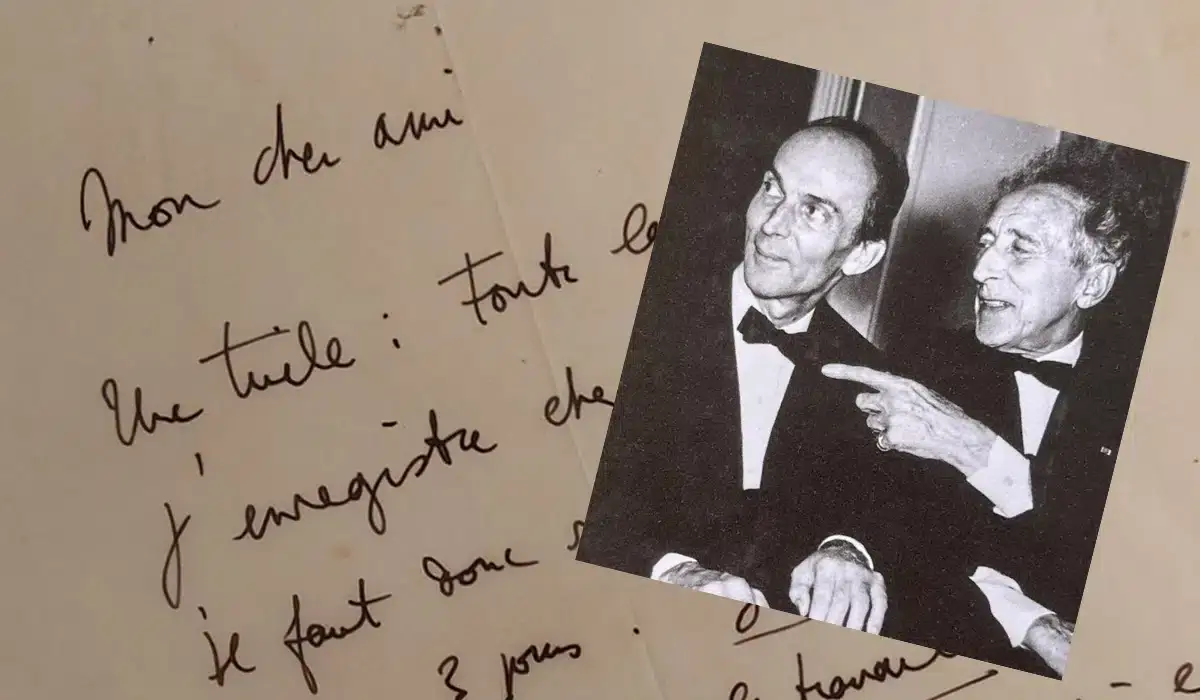 Mon cher ami
Une tuile : Toute le
j'enregistre che
il faut donc
3 jours .
le travail -